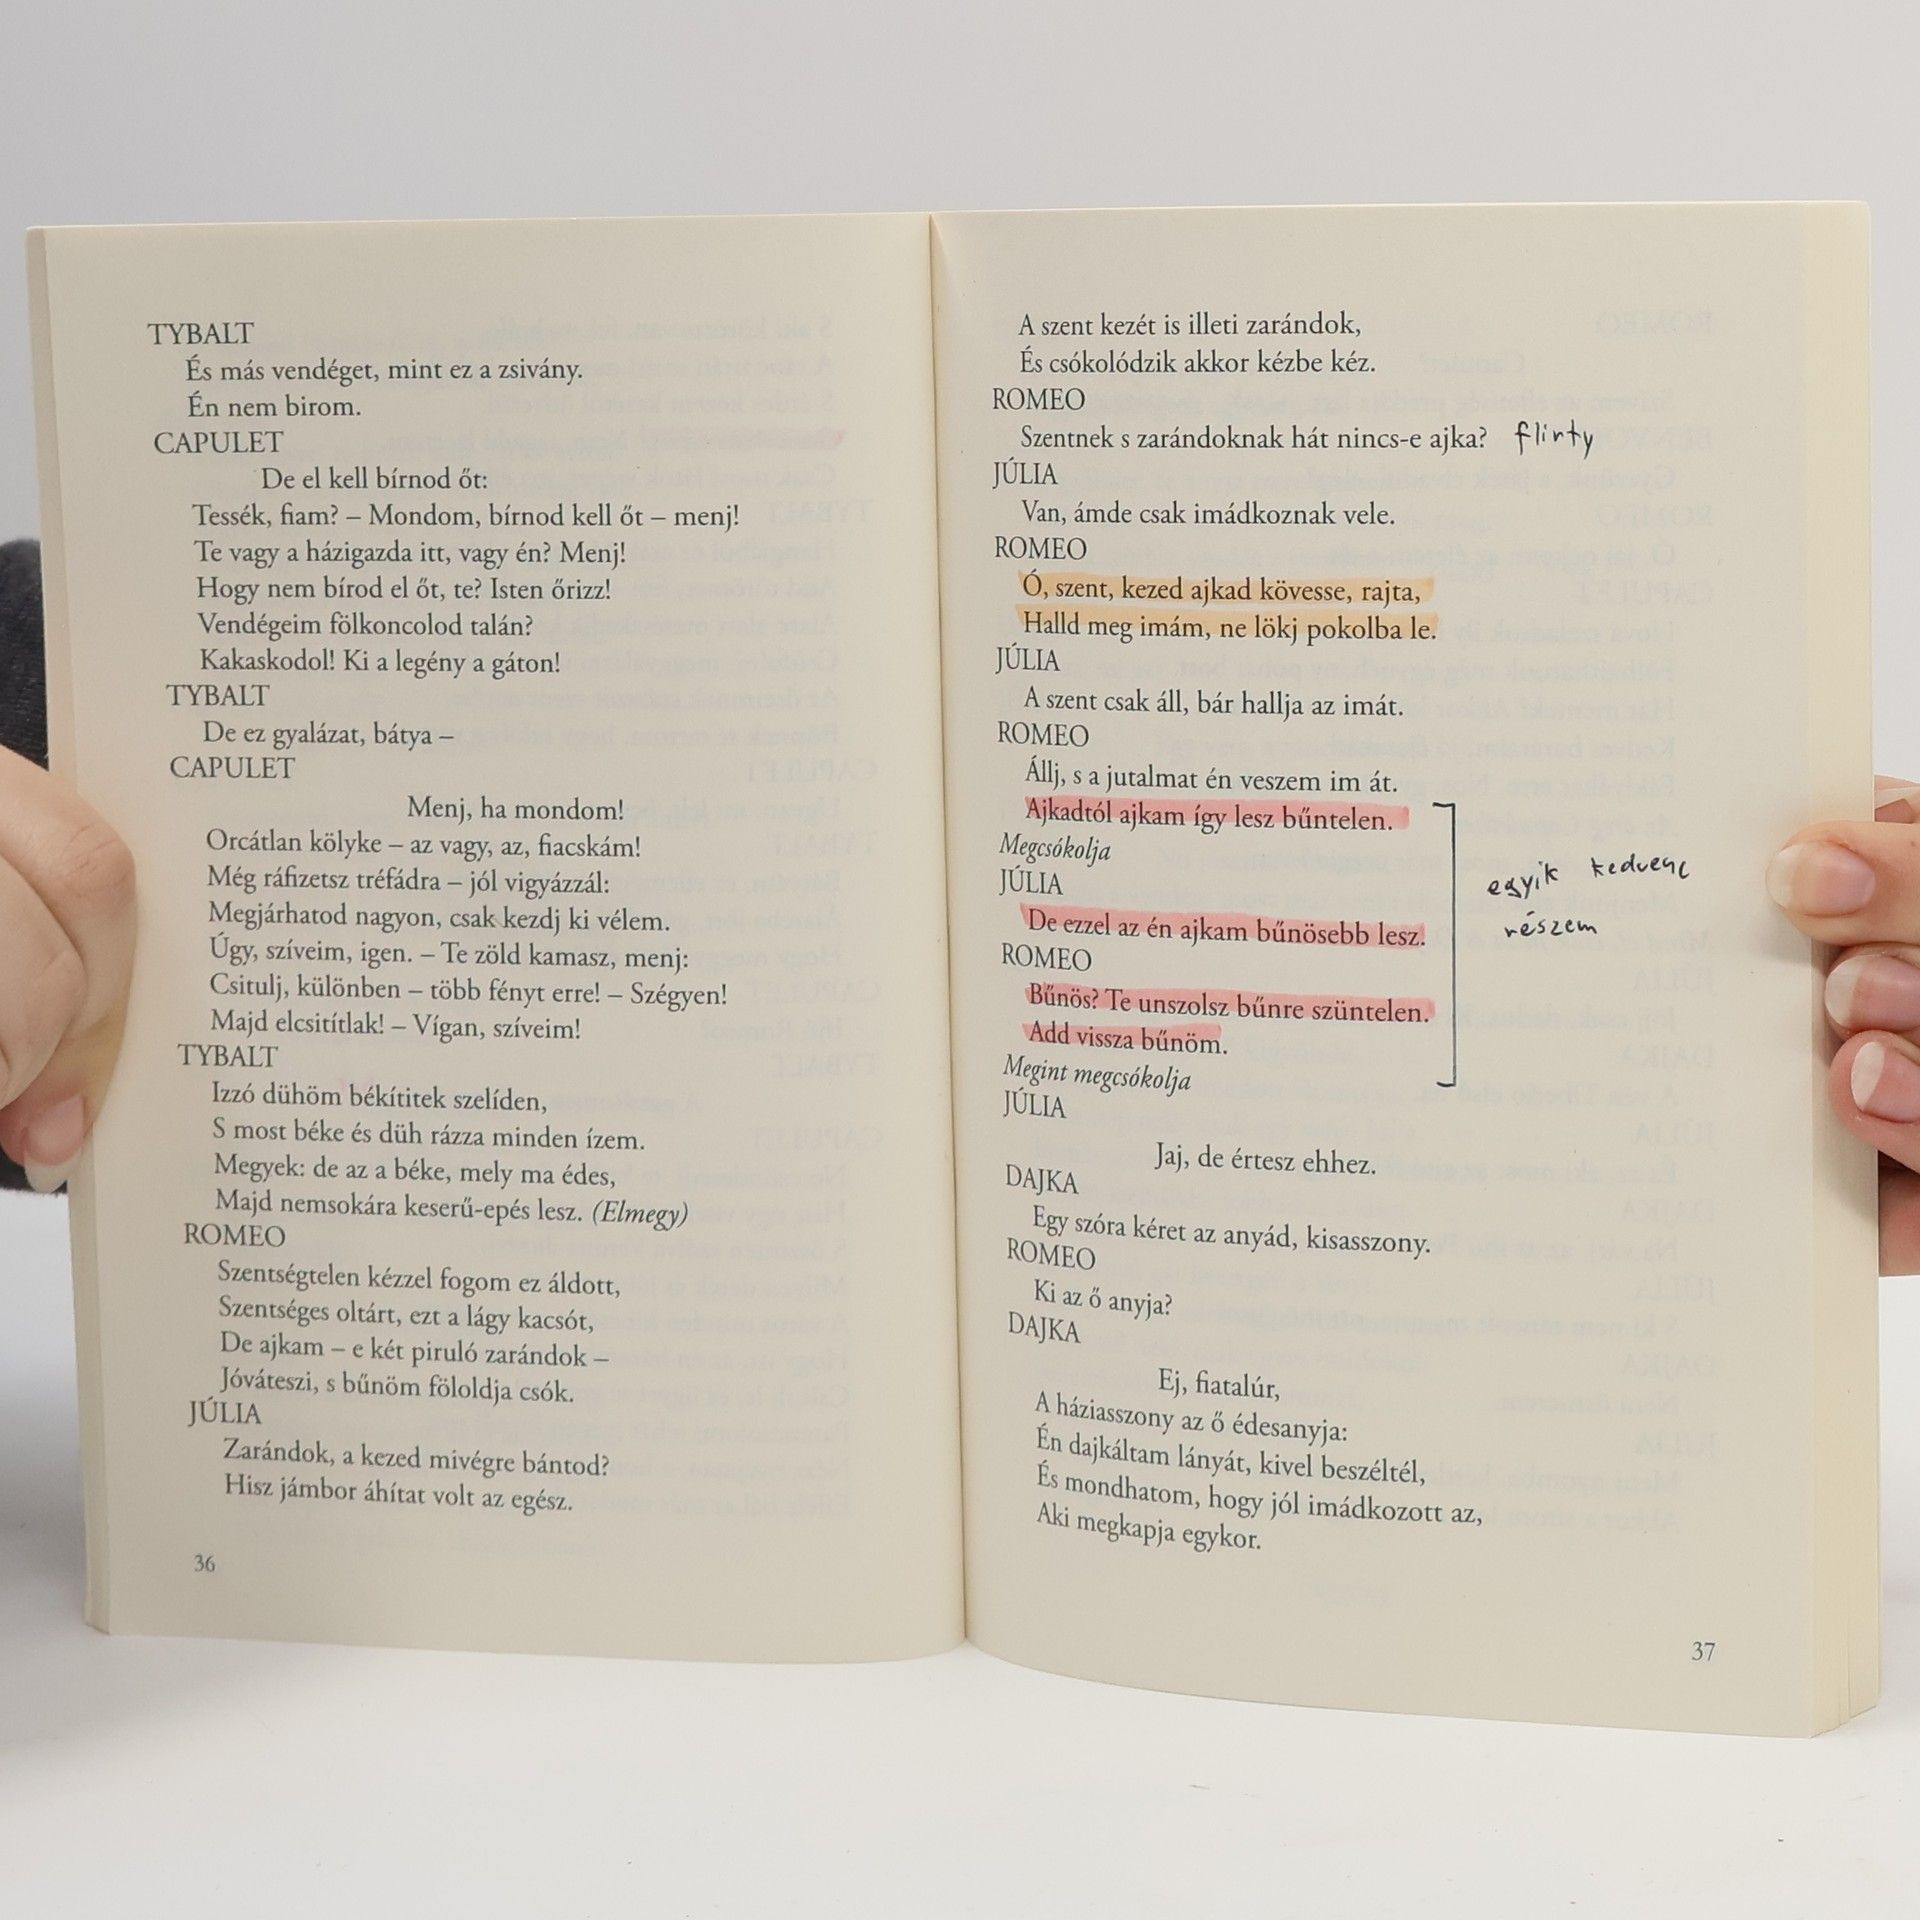 TYBALT
És más vendéget, mint ez a zsivány.
Én nem birom.
CAPULET
De el kell bírnod őt:
Tessék, fiam? – Mondom, bírnod kell őt – menj!
Te vagy a házigazda itt, vagy én? Menj!
Hogy nem bírod el őt, te? Isten őrizz!
Vendégeim fölkoncolod talán?
Kakaskodol! Ki a legény a gáton!
TYBALT
De ez gyalázat, bátya –
CAPULET
Menj, ha mondom!
Orcátlan kölyke – az vagy, az, fiacskám!
Még ráfizetsz tréfádra – jól vigyázzál:
Megjárhatod nagyon, csak kezdj ki vélem.
Úgy, szíveim, igen. – Te zöld kamasz, menj:
Csitulj, különben – több fényt erre! – Szégyen!
Majd elcsitítlak! – Vígan, szíveim!
TYBALT
Izzó dühöm békítitek szelíden,
S most béke és düh rázza minden ízem.
Megyek: de az a béke, mely ma édes,
Majd nemsokára keserű-epés lesz. (Elmegy)
ROMEO
Szentségtelen kézzel fogom ez áldott,
Szentséges oltárt, ezt a lágy kacsót,
De ajkam – e két piruló zarándok –
Jóváteszi, s bűnöm föloldja csók.
JÚLIA
Zarándok, a kezed mivégre bántod?
Hisz jámbor áhítat volt az egész.
36
A szent kezét is illeti zarándok,
És csókolódzik akkor kézbe kéz.
ROMEO
Szentnek s zarándoknak hát nincs-e ajka? flirty
JÚLIA
Van, ámde csak imádkoznak vele.
ROMEO
Ó, szent, kezed ajkad kövesse, rajta,
Halld meg imám, ne lökj pokolba le.
JÚLIA
A szent csak áll, bár hallja az imát.
ROMEO
Állj, s a jutalmat én veszem im át.
Ajkadtól ajkam így lesz bűntelen.
Megcsókolja
JÚLIA
De ezzel az én ajkam bűnösebb lesz.
ROMEO
Bűnös? Te unszolsz bűnre szüntelen.
Add vissza bűnöm.
Megint megcsókolja
egyik kedvenc
részem
JÚLIA
Jaj, de értesz ehhez.
DAJKA
Egy szóra kéret az anyád, kisasszony.
ROMEO
Ki az ő anyja?
DAJKA
Ej, fiatalúr,
A háziasszony az ő édesanyja:
Én dajkáltam lányát, kivel beszéltél,
És mondhatom, hogy jól imádkozott az,
Aki megkapja egykor.
37